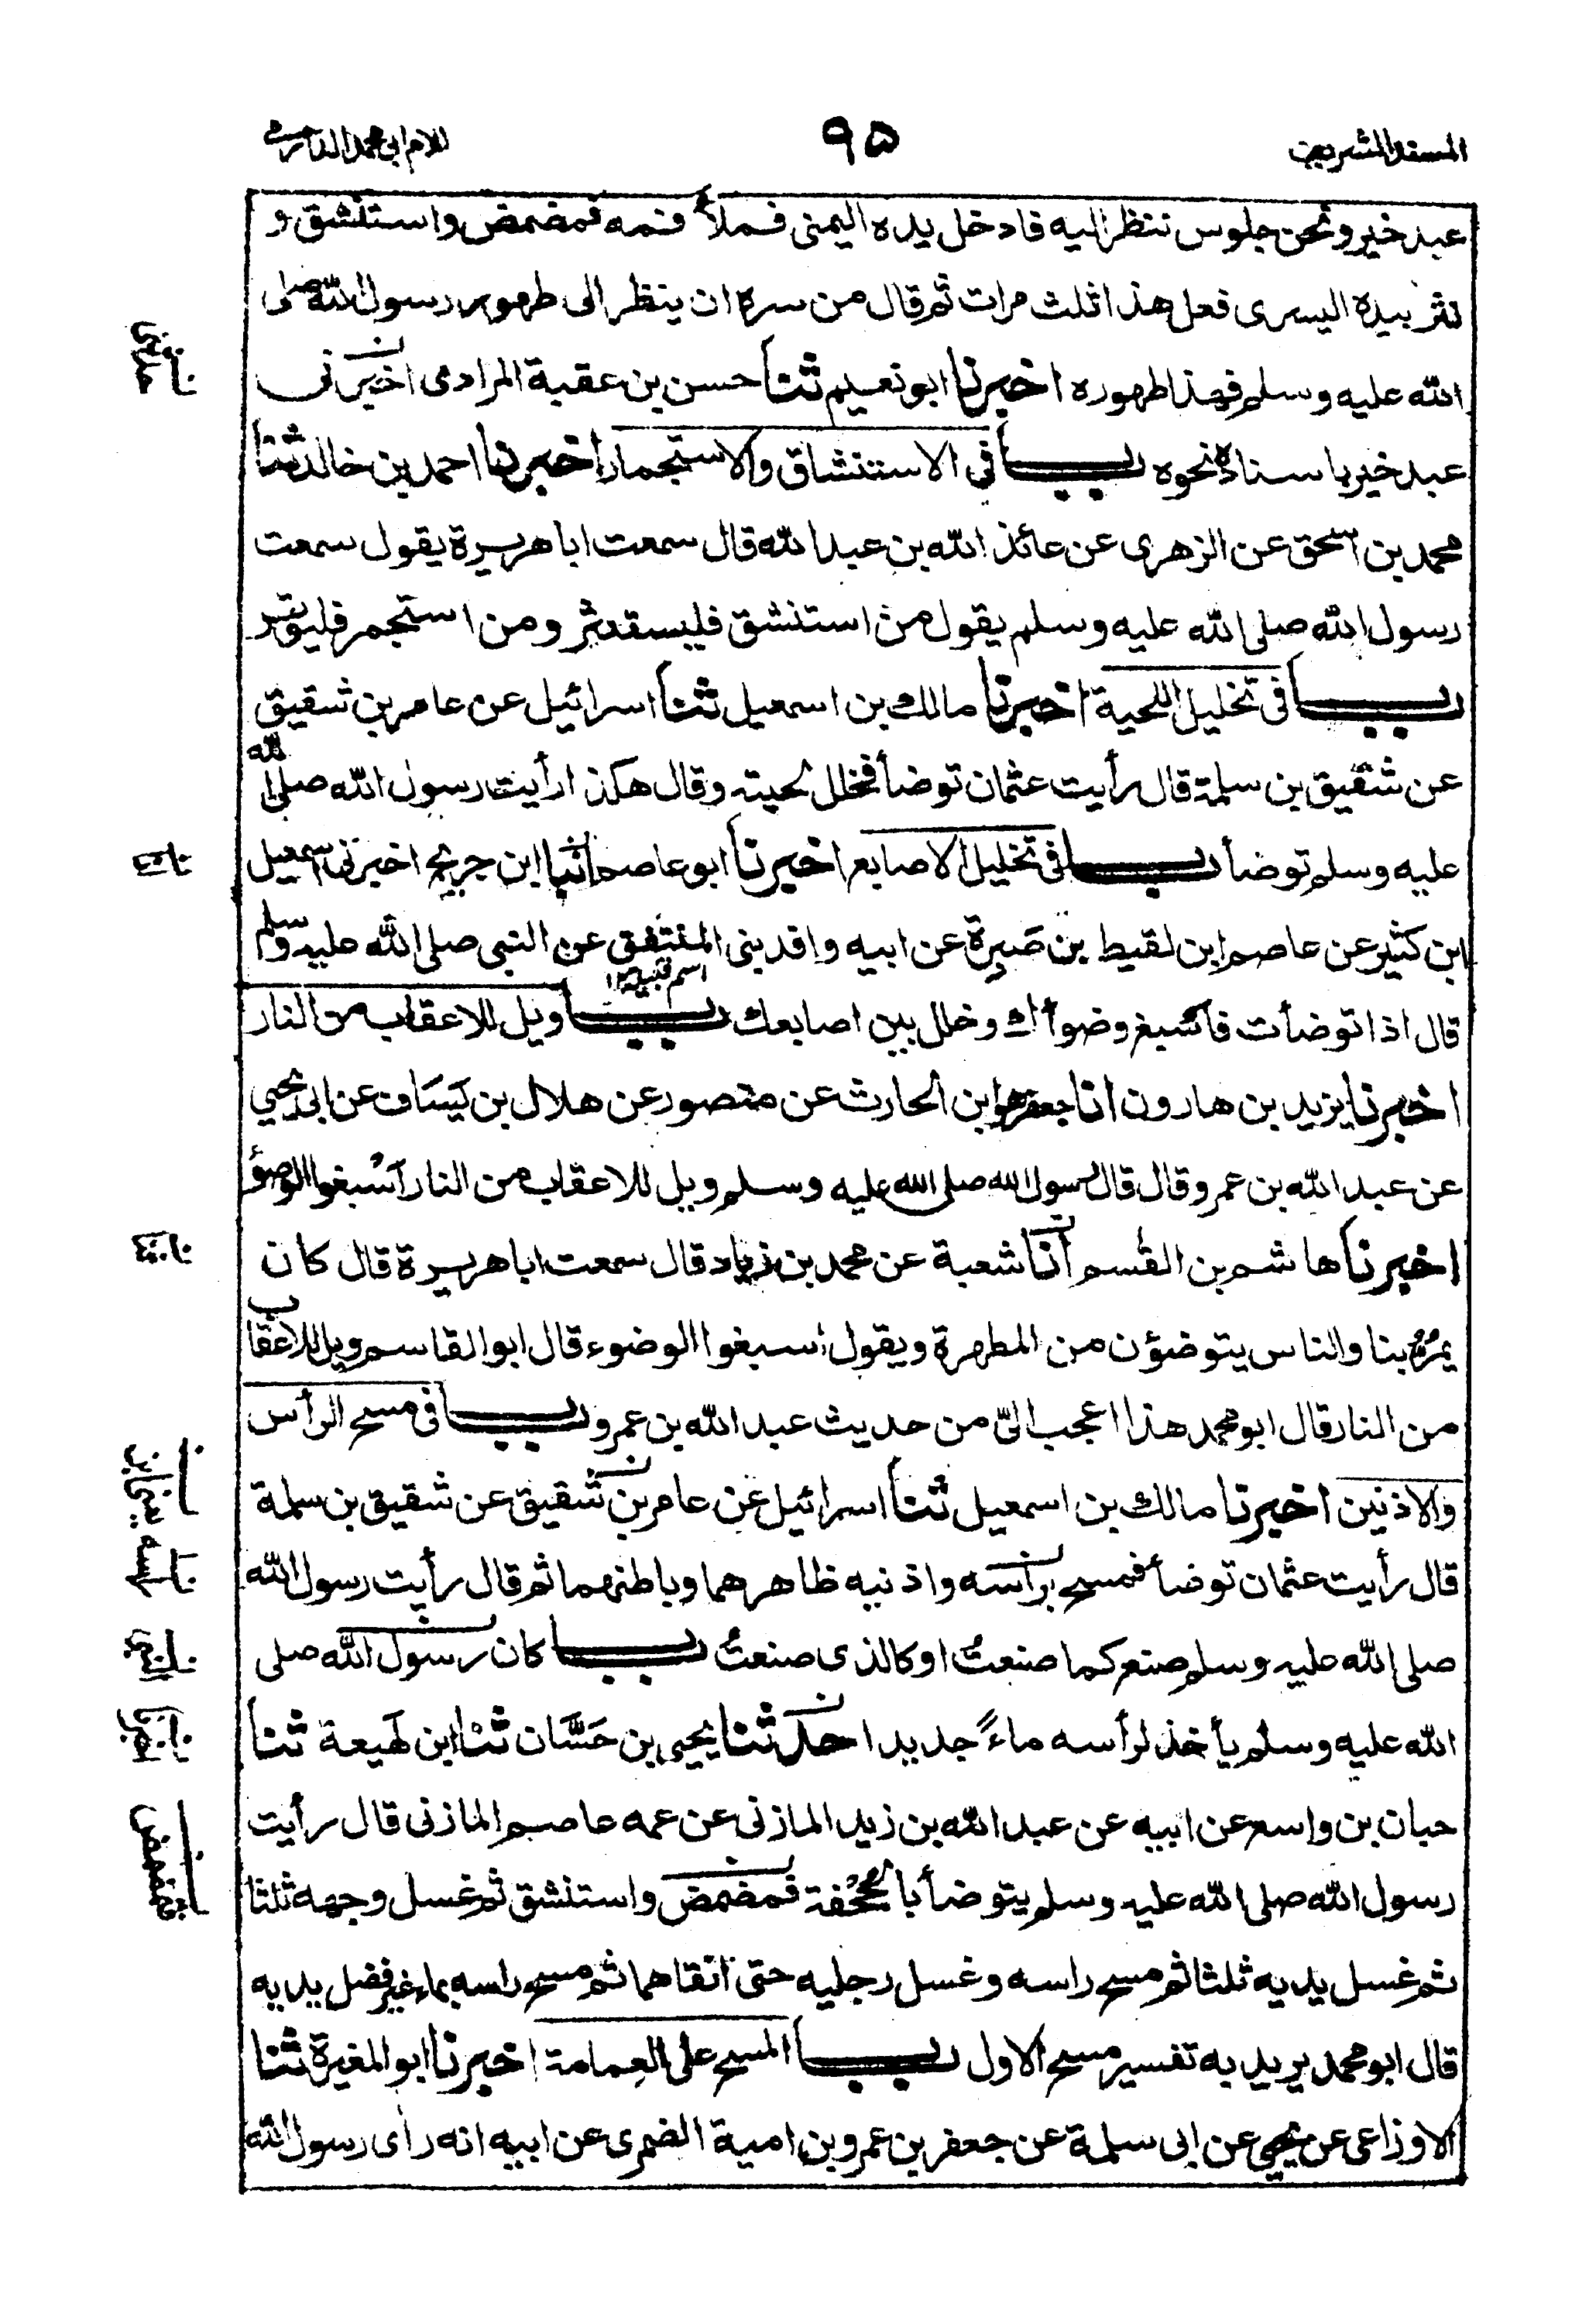 المسند الشريف ٩٥ للامام ابي محمد الدارمي
عبد خير ونحن جلوس ننظر اليه فادخل يده اليمنى فملأ فمه فمضمض واستنشق و
نثر بيده اليسرى فعل هذا ثلث مرات ثم قال من سره ان ينظر الى طهور رسول الله صلى
الله عليه وسلم فهذا طهوره اخبرنا ابو نعيم ثنا حسن بن عقبة المرادى اخبرنى
عبد خير باسناده نحوه باب فى الاستنشاق والاستجمار اخبرنا احمد بن خالد ثنا
محمد بن اسحق عن الزهرى عن عائذ الله بن عبد الله قال سمعت ابا هريرة يقول سمعت
رسول الله صلى الله عليه وسلم يقول من استنشق فليستنثر ومن استجمر فليوتر
باب فى تخليل اللحية اخبرنا مالك بن اسمعيل ثنا اسرائيل عن عامر بن شقيق
عن شقيق بن سلمة قال رأيت عثمان توضأ فخلل لحيته وقال هكذا رأيت رسول الله صلى الله
عليه وسلم توضأ باب فى تخليل الاصابع اخبرنا ابو عاصم انبا ابن جريج اخبرنى اسمعيل
ابن كثير عن عاصم ابن لقيط بن صَبِرة عن ابيه وافد بنى المنتفق عن النبى صلى الله عليه وسلم
اسم قبيلة ١٢
قال اذا توضأت فأسبغ وضوأك وخلل بين اصابعك باب ويل للاعقاب من النار
اخبرنا يزيد بن هارون انا جعفر هو ابن الحارث عن منصور عن هلال بن يَسَاف عن ابى يحيي
عن عبد الله بن عمرو قال قال رسول الله صلى الله عليه وسلم ويل للاعقاب من النار اَسْبغوا الوضؤ
اخبرنا هاشم بن القسم أنا شعبة عن محمد بن زياد قال سمعت ابا هريرة قال كان
يمُرُّ بنا والناس يتوضؤن من المطهرة ويقول اسبغوا الوضوء قال ابو القاسم ويل للاعقاب
من النار قال ابو محمد هذا اعجب الىّ من حديث عبد الله بن عمرو باب فى مسح الرأس
والاذنين اخبرنا مالك بن اسمعيل ثنا اسرائيل عن عامر بن شقيق عن شقيق بن سلمة
قال رأيت عثمان توضأ فمسح برأسه واذنيه ظاهرهما وباطنهما ثم قال رأيت رسول الله
صلى الله عليه وسلم صنع كما صنعتُ او كالذى صنعتُ باب كان رسول الله صلى
الله عليه وسلم يأخذ لرأسه ماءً جديدا حدثنا يحيى بن حَسَّان ثنا ابن لَهيعة ثنا
حبان بن واسع عن ابيه عن عبد الله بن زيد المازنى عن عمه عاصم المازنى قال رأيت
رسول الله صلى الله عليه وسلم يتوضأ بالجُحْفة فمضمض واستنشق ثم غسل وجهه ثلثا
ثم غسل يديه ثلثا ثم مسح راسه وغسل رجليه حتى انقاهما ثم مسح راسه بماء غير فضل يديه
قال ابو محمد يريد به تفسير مسح الاول باب المسح على العمامة اخبرنا ابو المغيرة ثنا
الاوزاعى عن يحيى عن ابى سلمة عن جعفر بن عمرو بن امية الضمرى عن ابيه انه رأى رسول الله